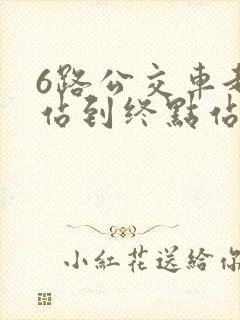 6路公交車
佔到终點佔
小紅花送給你